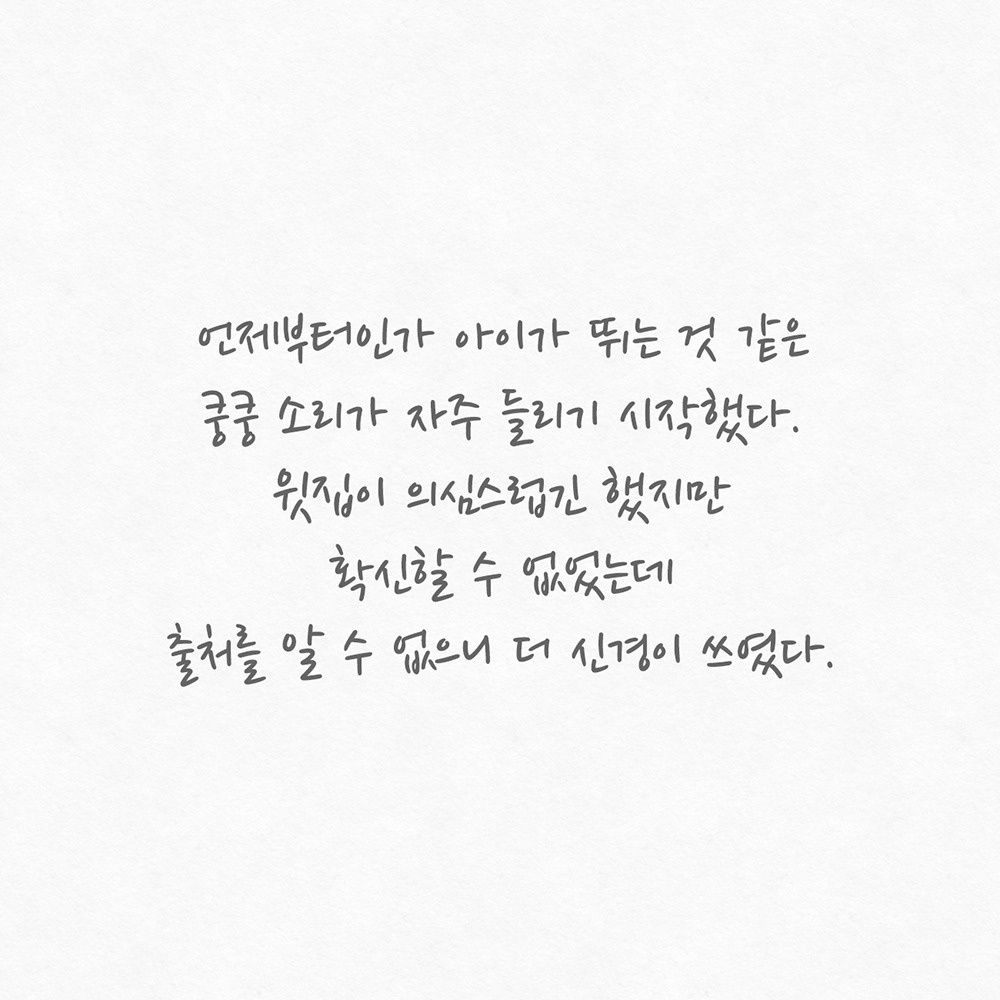 언제부터인가 아이가 뛰는 것 같은
쿵쿵 소리가 자주 들리기 시작했다.
윗집이 의심스럽긴 했지만
확신할 수 없었는데
출처를 알 수 없으니 더 신경이 쓰였다.